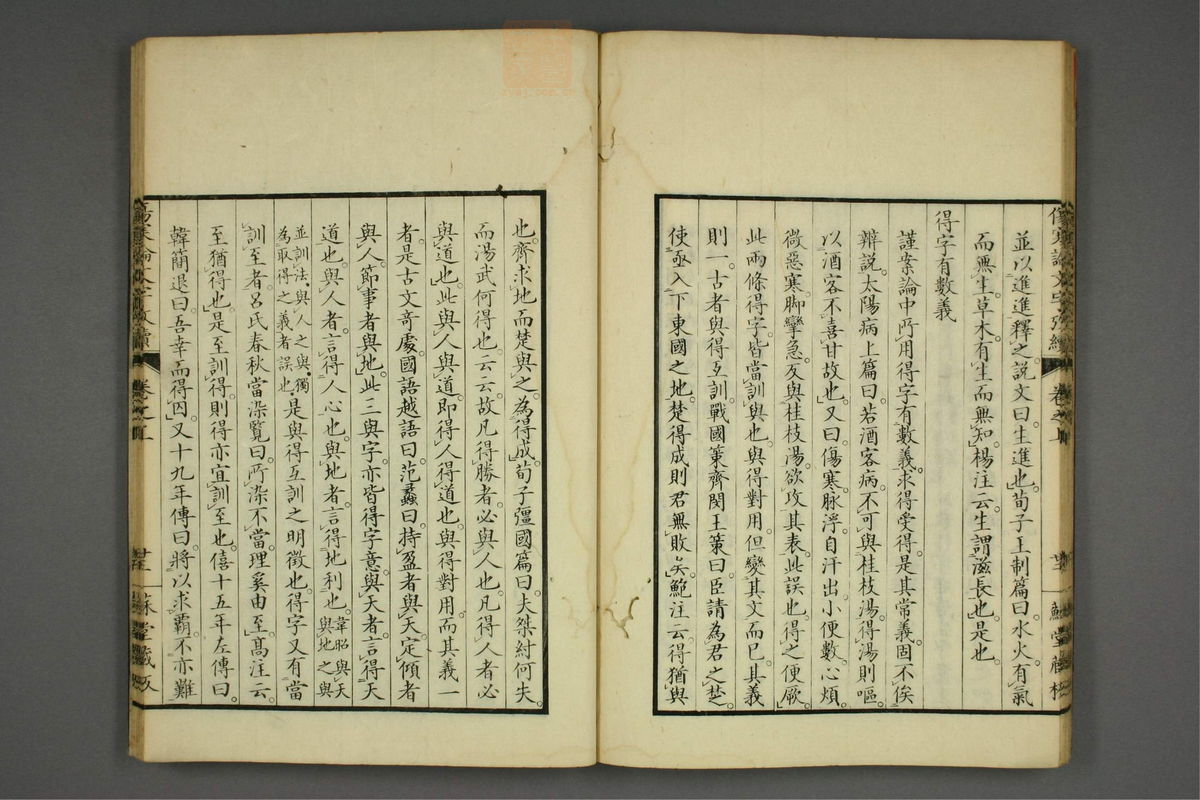 並以進進釋之。説文曰。生進也。荀子王制篇曰。水火有氣
而無生。草木有生而無知。楊注云。生謂滋長也。是也
得字有數義
謹案論中所用得字有數義。求得受得。是其常義。固不俟
辨説。太陽病上篇曰。若酒客病。不可與桂枝湯。得湯則嘔
以酒客不喜甘故也。又曰。傷寒脉浮。自汗出。小便數。心煩
微惡寒。脚攣急。反與桂枝湯。欲攻其表。此誤也。得之便厥
此兩條得字。皆當訓與也。與得對用。但變其文而已。其義
則一。古者與得互訓。戰國策齊閔王策曰。臣請為君之楚
使亟入下東國之地。楚得成。則君無敗矣。鮑注云。得猶與
也。齊求地而楚與之。為得成。荀子彊國篇曰。夫桀紂何失
而湯武何得也云云。故凡得勝者。必與人也。凡得人者。必
與道也。此與人與道。即得人得道也。與得對用。而其義一
者。是古文奇處。國語越語曰。范蠡曰。持盈者與天。定傾者
與人。節事者與地。此三與字。亦皆得字意。與天者。言得天
道也。與人者。言得人心也。與地者。言得地利也。韋昭與天與地之與
並訓法。與人之與。獨為取得之義者誤也。是與得互訓之明徵也。得字又有當
訓至者。呂氏春秋當染覽曰。所染不當。理奚由至。高注云
至猶得也。是至訓得。則得亦宜訓至也。僖十五年左傳曰
韓簡退曰。吾幸而得囚。又十九年傳曰。將以求霸。不亦難
卷之